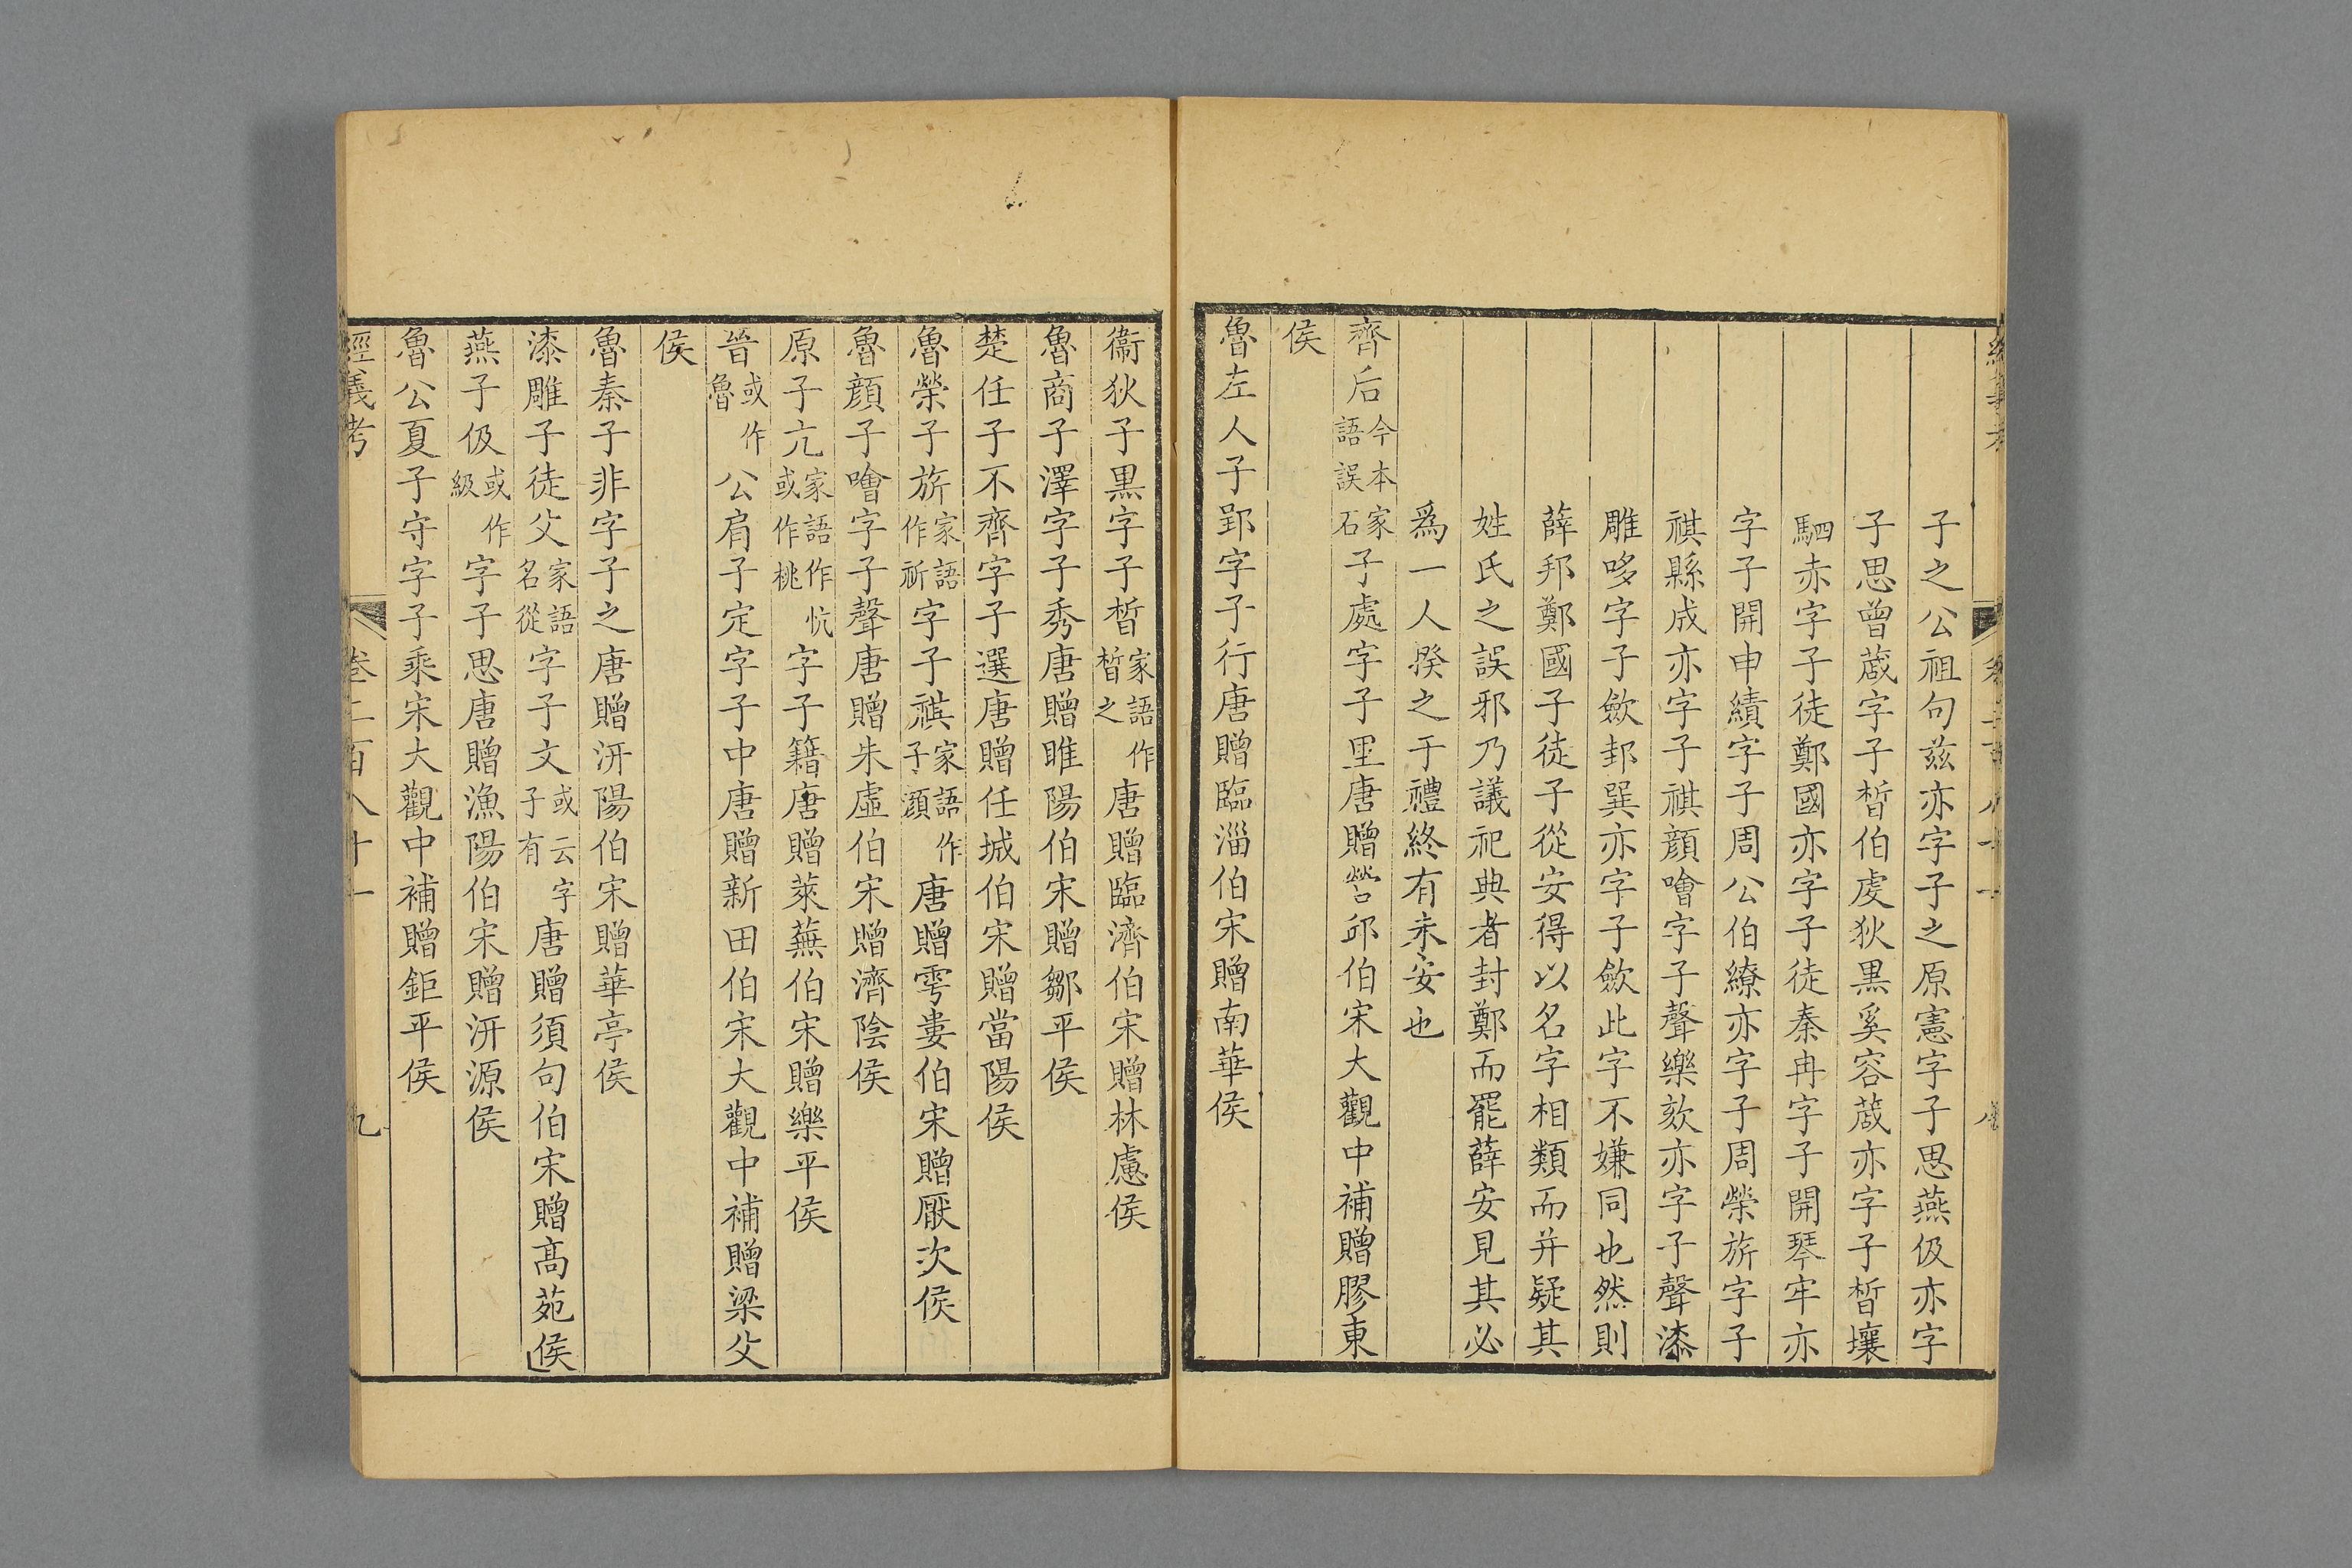 子之公祖句兹亦字子之原憲字子思燕伋亦字
子思曾蒧字子晳伯虔狄黒奚容蒧亦字子晳壤
駟赤字子徒鄭國亦字子徒秦冉字子開琴牢亦
字子開申績字子周公伯繚亦字子周榮旂字子
祺縣成亦字子祺顔噲字子聲樂欬亦字子聲漆
雕哆字子歛邽巽亦字子歛此字不嫌同也然則
薛邦鄭國子徒子從安得以名字相類而并疑其
姓氏之誤邪乃議祀典者封鄭而罷薛安見其必
爲一人揆之于禮終有未安也
齊后今本家語誤石子處字子里唐贈營邱伯宋大觀中補贈膠東
侯
魯左人子郢字子行唐贈臨淄伯宋贈南華侯
衞狄子黒字子晳家語作晳之唐贈臨濟伯宋贈林慮侯
魯商子澤字子秀唐贈睢陽伯宋贈鄒平侯
楚任子不齊字子選唐贈任城伯宋贈當陽侯
魯榮子旂家語作祈字子祺家語作子顔唐贈雩婁伯宋贈厭次侯
魯顔子噲字子聲唐贈朱虛伯宋贈濟陰侯
原子亢家語作忼或作桃字子籍唐贈萊蕪伯宋贈樂平侯
晉或作魯公肩子定字子中唐贈新田伯宋大觀中補贈梁父
侯
魯秦子非字子之唐贈汧陽伯宋贈華亭侯
漆雕子徒父家語名從字子文或云字子有唐贈須句伯宋贈髙苑侯
燕子伋或作級字子思唐贈漁陽伯宋贈汧源侯
魯公夏子守字子乘宋大觀中補贈鉅平侯
經義考 卷二百八十一 九